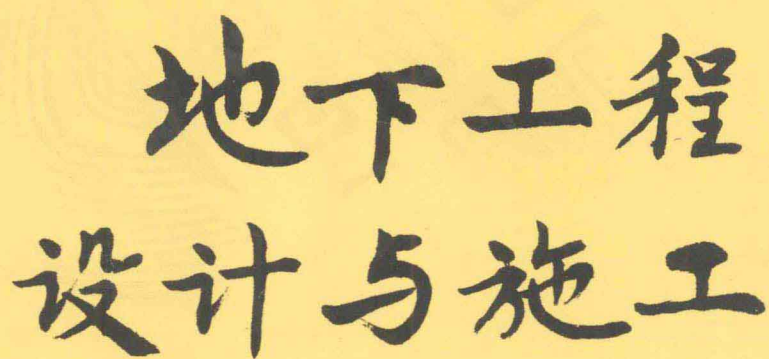 地下工程
设计与施工